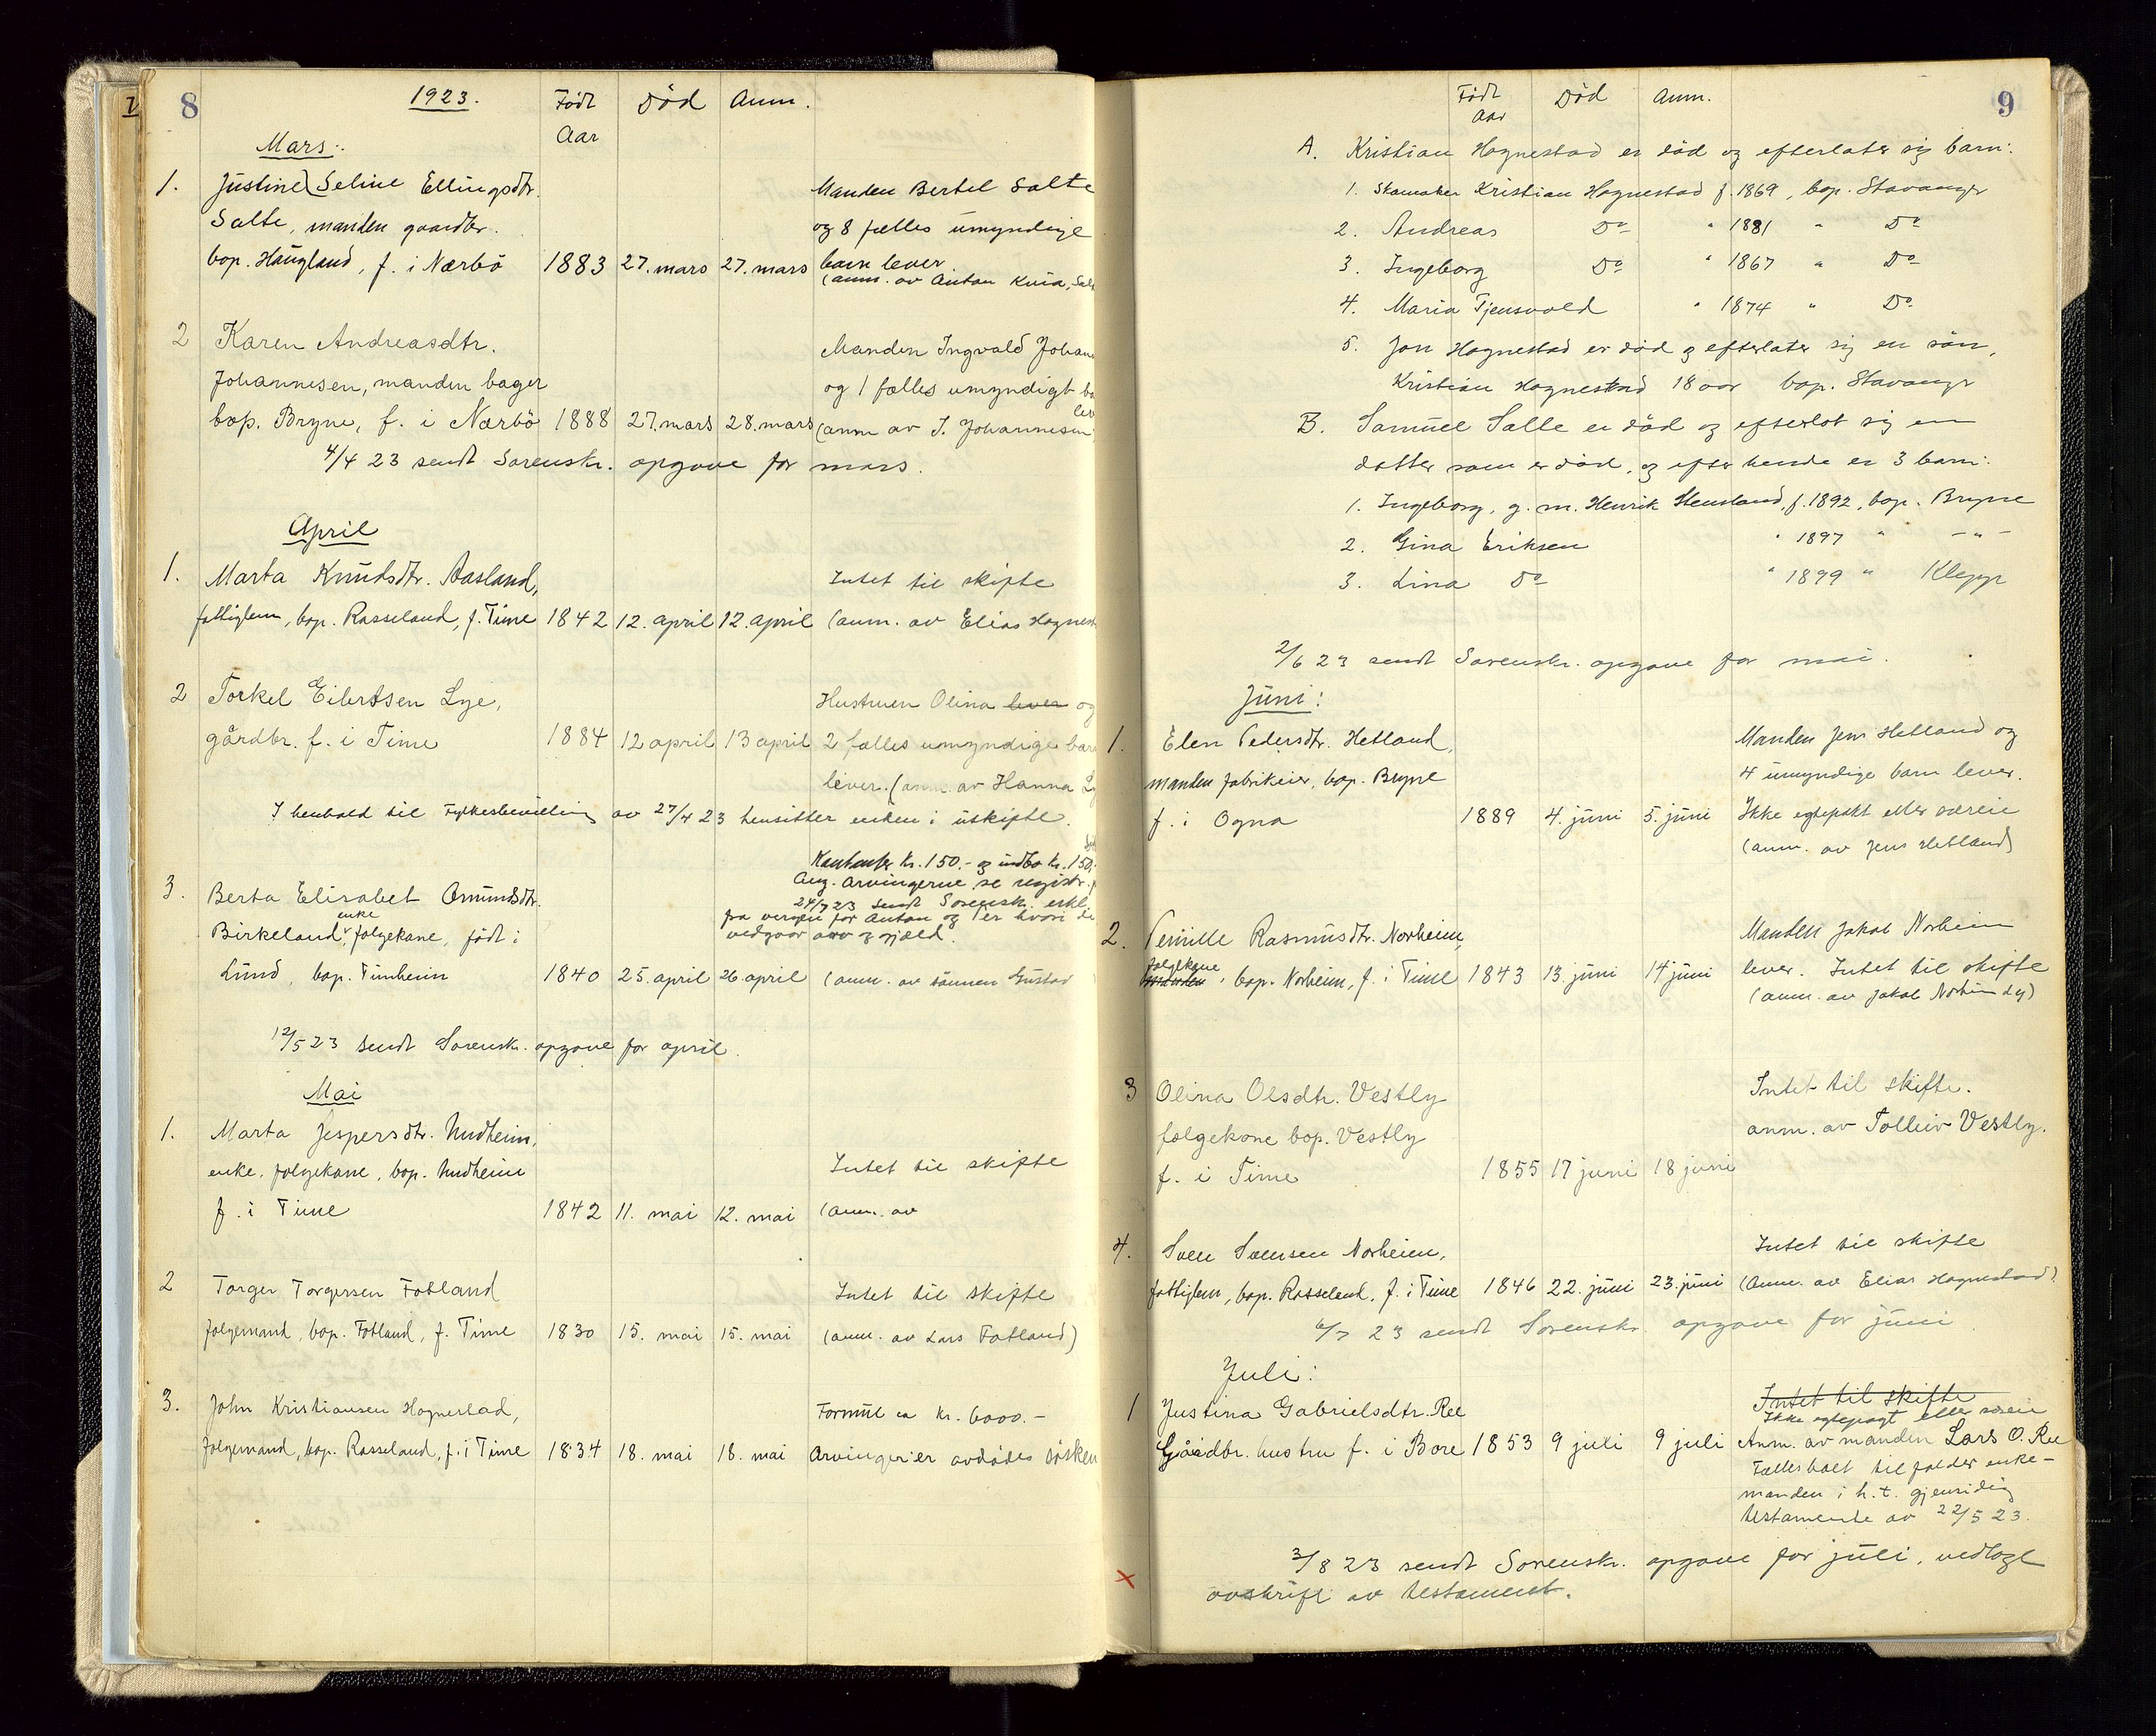 8
1923.
Født Aar
Död
Anm.
Mars:
1. Justine Seline Ellingsdtr.
Salte, manden gaardbr.
bop. Haugland, f. i Nærbö 1883 27. mars 27. mars
Manden Bertel Salte
og 8 fælles umyndige
barn lever
(anm. av Anton Kvia,
2 Karen Andreasdtr.
Johannesen, manden bager
bop. Bryne, f. i Nærbö 1888 27. mars 28. mars
Manden Ingvald Johan
og 1 fælles umyndigt
(anm av I. Johannesen
4/4 23 sendt Sorenskr. opgave for mars.
April
1. Marta Knudsdtr. Aasland,
fattiglem, bop. Rosseland, f. Time 1842 12. april 12. april
Intet til skifte
(anm. av Elias Hognest
2 Torkel Eilertsen Lye,
gårdbr. f. i Time 1884 12 april 13 april
Hustruen Olina lever og
2 fælles umyndige barn
lever. (anm. av Hanna
I henhold til Fylkesbevilling av 27/4 23 hensitter enken i uskifte.
3. Berta Elisabet Omundsdtr.
Birkeland, enke, folgekone, født i
Lund, bop. Timheim 1840 25. april 26 april
Kontanter kr. 150.- og indbo kr. 150.
Ang. arvingerne se registr.
24/7 23 sendt Sorenskr. erkl.
fra vergen for Anton og er hvori de
vedgaar arv og gjæld.
(anm. av sönnen Gustad
12/5 23 sendt Sorenskr. opgave for april.
Mai
1. Marta Jespersdtr. Undheim,
enke, folgekone, bop. Undheim
f. i Time 1842 11. mai 12. mai
Intet til skifte
(anm. av
2 Torger Torgersen Fotland
folgemand, bop. Fotland, f. Time 1830 15. mai 15. mai
Intet til skifte
(anm. av Lars Fotland)
3. John Kristiansen Hognestad,
folgemand, bop. Rosseland, f. i Time 1834 18. mai 18. mai
Formue ca kr. 6000.-
Arvinger er avdödes sösken
9
Födt Aar
Död
Anm.
A. Kristian Hognestad er död og efterlater sig barn:
1. Skomaker Kristian Hognestad f. 1869, bop. Stavanger
2. Andreas Do " 1881 " Do
3. Ingeborg Do " 1867 " Do
4. Maria Tjensvold " 1874 " Do
5. Jon Hognestad er död og efterlater sig en sön,
Kristian Hognestad 18 aar bop. Stavanger
B. Samuel Salte er död og efterlot sig en
datter som er död, og efter hende er 3 barn:
1. Ingeborg, g. m. Henrik Stensland, f. 1892, bop. Bryne
2. Gina Eriksen " 1897 " - " -
3. Lina Do " 1899 " Klepp
2/6 23 sendt Sorenskr. opgave for mai.
Juni:
1. Elen Pedersdtr. Hetland,
manden fabrikeier, bop. Bryne
f. i Ogna 1889 4. juni 5. juni
Manden Jens Hetland og
4 umyndige barn lever.
Ikke egtepakt eller særeie
(anm. av Jens Hetland)
2. Pernille Rasmusdtr. Norheim,
folgekone, bop. Norheim, f. i Time 1843 13. juni 14 juni
Manden Jakob Norheim
lever. Intet til skifte
(anm. av Jakob Norheim
3 Olina Olsdtr. Vestly
folgekone bop. Vestly
f. i Time 1855 17 juni 18 juni
Intet til skifte.
anm. av Tolleiv Vestly.
4. Sven Svensen Norheim,
fattiglem, bop. Rosseland, f. i Time 1846 22. juni 23. juni
Intet til skifte
(Anm. av Elias Hognestad)
6/7 23 sendt Sorenskr. opgave for juni
Juli:
1 Justina Gabrielsdtr. Ree
Gårdbr. hustru f. i Bore 1853 9 juli 9 juli
Intet til skifte
Ikke egtepagt eller særeie
Anm. av manden Lars O. Ree
Fællesboet tilfalder enke-
manden i h. t. gjensidig
testamente av 22/5 23.
3/8 23 sendt Sorenskr. opgave for juli, vedlagt
avskrift av testament.